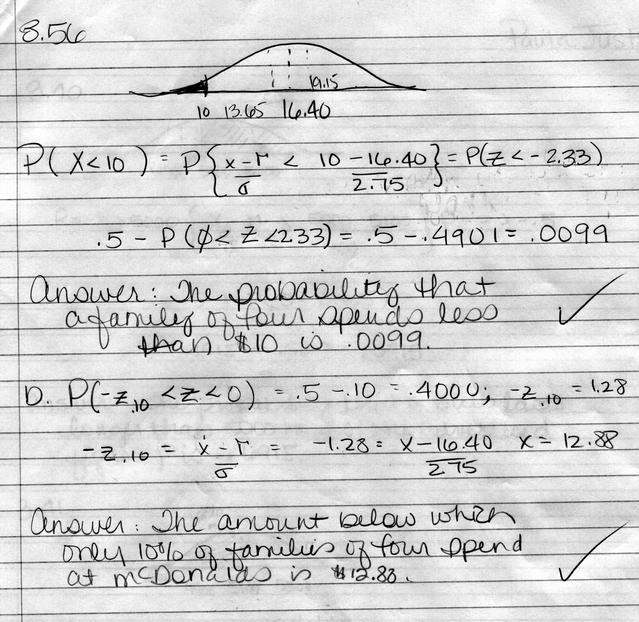 8.56
19.15
10 13.65 16.40
P(X<10) = P{x-μ/σ < 10-16.40/2.75} = P(Z<-2.33)
.5 - P(0<Z<2.33) = .5-.4901 = .0099
Answer: The probability that
a family of four spends less
than $10 is .0099.
b. P(-z.10 <z<0) = .5-.10 = .4000; -z.10 = 1.28
-z.10 = x-μ/σ = -1.28 = x-16.40/2.75 x = 12.88
Answer: The amount below which
only 10% of families of four spend
at McDonalds is $12.88.